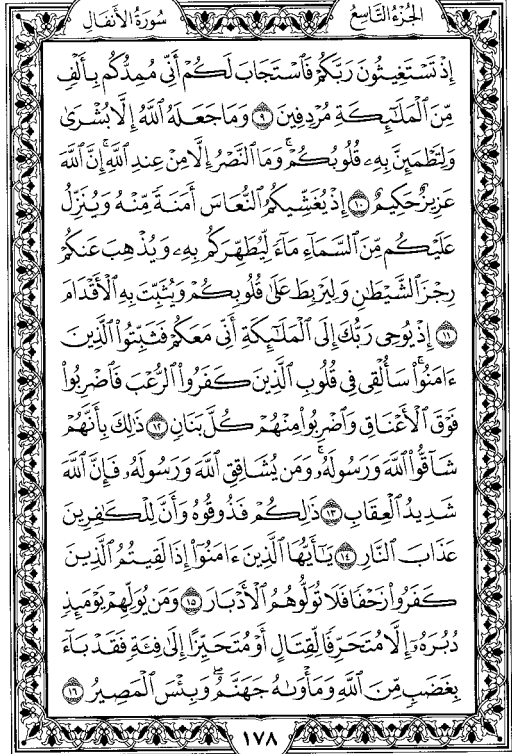 سُورَةُ الأَنفَالِ
الجُزْءُ التَّاسِعُ
إِذْ تَسْتَغِيثُونَ رَبَّكُمْ فَٱسْتَجَابَ لَكُمْ أَنِّى مُمِدُّكُم بِأَلْفٍ
مِّنَ ٱلْمَلَـٰٓئِكَةِ مُرْدِفِينَ ٩ وَمَا جَعَلَهُ ٱللَّهُ إِلَّا بُشْرَىٰ
وَلِتَطْمَئِنَّ بِهِۦ قُلُوبُكُمْ ۚ وَمَا ٱلنَّصْرُ إِلَّا مِنْ عِندِ ٱللَّهِ ۚ إِنَّ ٱللَّهَ
عَزِيزٌ حَكِيمٌ ١٠ إِذْ يُغَشِّيكُمُ ٱلنُّعَاسَ أَمَنَةً مِّنْهُ وَيُنَزِّلُ
عَلَيْكُم مِّنَ ٱلسَّمَآءِ مَآءً لِّيُطَهِّرَكُم بِهِۦ وَيُذْهِبَ عَنكُمْ
رِجْزَ ٱلشَّيْطَـٰنِ وَلِيَرْبِطَ عَلَىٰ قُلُوبِكُمْ وَيُثَبِّتَ بِهِ ٱلْأَقْدَامَ
١١ إِذْ يُوحِى رَبُّكَ إِلَى ٱلْمَلَـٰٓئِكَةِ أَنِّى مَعَكُمْ فَثَبِّتُوا۟ ٱلَّذِينَ
ءَامَنُوا۟ ۚ سَأُلْقِى فِى قُلُوبِ ٱلَّذِينَ كَفَرُوا۟ ٱلرُّعْبَ فَٱضْرِبُوا۟
فَوْقَ ٱلْأَعْنَاقِ وَٱضْرِبُوا۟ مِنْهُمْ كُلَّ بَنَانٍ ١٢ ذَٰلِكَ بِأَنَّهُمْ
شَآقُّوا۟ ٱللَّهَ وَرَسُولَهُۥ ۚ وَمَن يُشَاقِقِ ٱللَّهَ وَرَسُولَهُۥ فَإِنَّ ٱللَّهَ
شَدِيدُ ٱلْعِقَابِ ١٣ ذَٰلِكُمْ فَذُوقُوهُ وَأَنَّ لِلْكَـٰفِرِينَ
عَذَابَ ٱلنَّارِ ١٤ يَـٰٓأَيُّهَا ٱلَّذِينَ ءَامَنُوٓا۟ إِذَا لَقِيتُمُ ٱلَّذِينَ
كَفَرُوا۟ زَحْفًا فَلَا تُوَلُّوهُمُ ٱلْأَدْبَارَ ١٥ وَمَن يُوَلِّهِمْ يَوْمَئِذٍ
دُبُرَهُۥٓ إِلَّا مُتَحَرِّفًا لِّقِتَالٍ أَوْ مُتَحَيِّزًا إِلَىٰ فِئَةٍ فَقَدْ بَآءَ
بِغَضَبٍ مِّنَ ٱللَّهِ وَمَأْوَىٰهُ جَهَنَّمُ ۖ وَبِئْسَ ٱلْمَصِيرُ ١٦
١٧٨